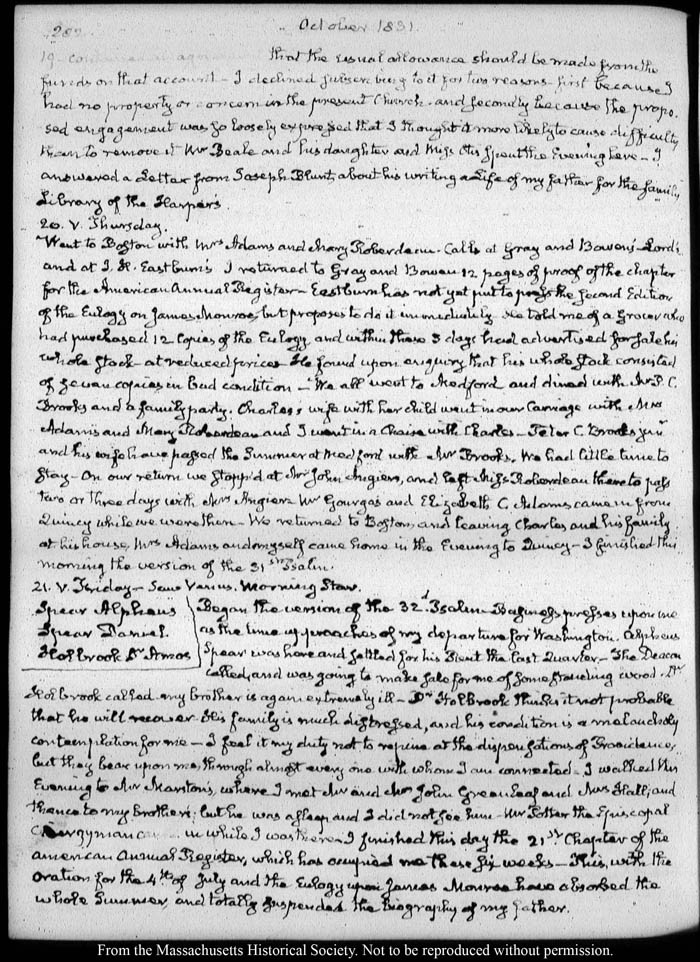 282
October 1831.
19. continued that the usual allowance should be made from the
funds on that account — I declined subscribing to it for two reasons — first because I
had no property or concern in the present Church, and secondly because the propo-
sed engagement was so loosely expressed that I thought it more likely to cause difficulty
than to remove it Mr Beale and his daughter and Miss Otis spent the Evening here — I
answered a Letter from Joseph Blunt, about his writing a Life of my father for the family
Library of the Harper's.
20. V. Thursday.
Went to Boston with Mrs Adams and Mary Roberdeau. Calls at Gray and Bowen's
and at J. H. Eastburn's I returned to Gray and Bowen 12 pages of proof of the chapter
for the American Annual Register — Eastburn has not yet put to press the second Edition
of the Eulogy on James Monroe, but proposes to do it immediately He told me of a Grocer who
had purchased 12 Copies of the Eulogy, and within these 3 days had advertised for sale his
whole stock — at reduced prices — He found upon enquiry that his whole stock consisted
of seven copies in bad condition — We all went to Medford and dined with Mr P. C.
Brooks and a family party. Charles's wife with her child went in our Carriage with Mrs
Adams and Mary Roberdeau and I went in a Chaise with Charles — Peter C. Brooks junr
and his wife have passed the Summer at Medford with Mr Brooks, We had little time to
stay — On our return we stopp'd at Mr John Angier's, and left Miss Roberdeau there to pass
two or three days with Mrs Angier Mr Gourgas and Elizabeth C. Adams came in from
Quincy while we were then — We returned to Boston, and leaving Charles and his family
at his house, Mrs Adams and myself came home in the Evening to Quincy — I finished this
morning the version of the 31st Psalm.
21. V. Friday — Saw Venus. Morning Star.
Spear Alpheus Began the version of the 32d Psalm — Business presses upon me
Spear Daniel as the time approaches of my departure for Washington. Alpheus
Holbrook Dr Amos Spear was here and settled for his Rent the last Quarter — The Deacon
called, and was going to make sale for me of some standing wood. Dr
Holbrook called — my brother is again extremely ill — Dr Holbrook thinks it not probable
that he will recover — His family is much distressed, and his condition is a melancholy
contemplation for me — I feel it my duty not to repine at the dispensations of Providence,
but they bear upon me, through almost every one with whom I am connected — I walked this
Evening to Mr Marston's, where I met Mr and Mrs John Greenleaf and Mrs Hall; and
thence to my brother's; but he was asleep and I did not see him — Mr Potter the Episcopal
Clergyman in while I was there — I finished this day the 21st Chapter of the
American Annual Register, which has occupied me these six weeks — This, with the
oration for the 4th of July and the Eulogy upon James Monroe have absorbed the
whole Summer, and totally suspended the biography of my father.
From the Massachusetts Historical Society. Not to be reproduced without permission.